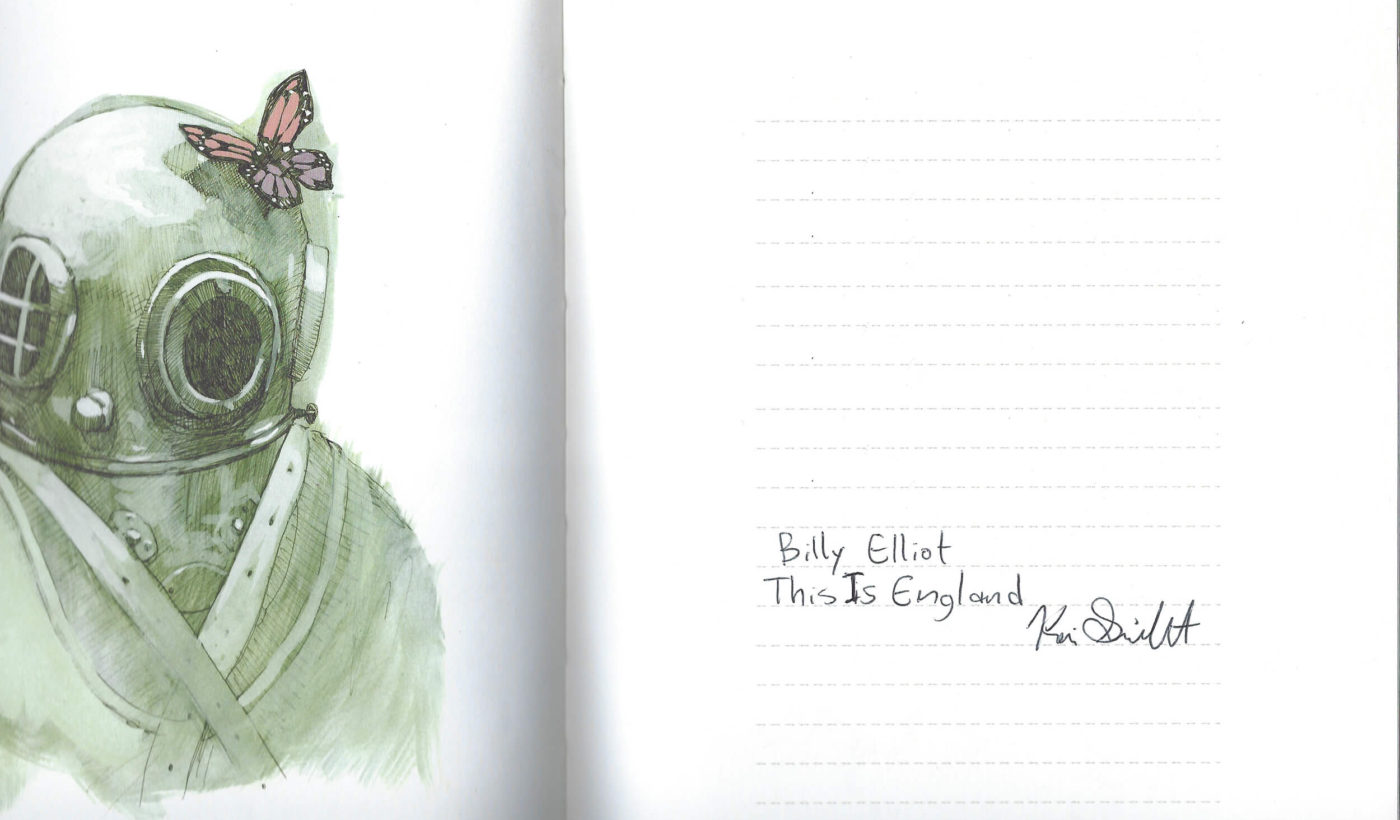 Billy Elliot
This Is England